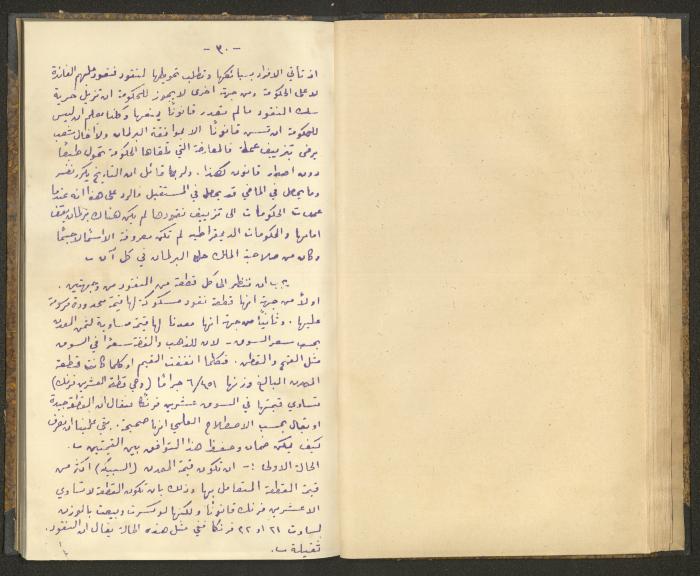 - ٣٠ -
اذ تأتي الافراد بسبائكها وتطلب تحويلها لنقود فتعود عليهم الفائدة
لا على الحكومة ومن جهة اخرى لا يجوز للحكومة ان تزيل حرية
سك النقود ما لم تصدر قانونًا يمنعها وكلنا يعلم ان ليس
للحكومة ان تسن قانونًا الا بموافقة البرلمان ولا اخال شعب
يرضى بتزييف عملة فالمعارضة التي تلقاها الحكومة تحول طبعًا
دون اصدار قانون كهذا . ولربما قائل ان التاريخ يكرر نفسه
وما يحصل في الماضي قد يحصل في المستقبل فالرد على هذا انه عندما
عمدت الحكومات الى تزييف نقودها لم يكن هناك برلمان يقف
امامها والحكومات الديمقراطية لم تكن معروفة الا
وكان من صلاحية الملك حل البرلمان في كل آن
يجب ان ننظر الى كل قطعة من النقود من وجهتين .
اولًا من جهة انها قطعة نقود مسكوكة لها قيمة محدودة مرسومة
عليها . وثانيًا من جهة انها معدنًا لها قيمة مساوية لثمن المعدن
بحسب سعر السوق - لان للذهب والفضة سعرًا في السوق
مثل القمح والقطن . فكلما اتفقت القيم او كلما كانت قطعة
المعدن البالغ وزنها ٦/٤٥١ جرامًا (وهي قطعة العشرين فرنك)
تساوي قيمتها في السوق عشرين فرنكًا فيقال ان القطعة جيدة
او يقال بحسب الاصطلاح العلمي انها صحيحة . بقي علينا ان نعرف
كيف يمكن ضمان وحفظ هذا التوافق بين القيمتين
الحالة الاولى :- ان تكون قيمة المعدن (السبيكة) اكثر من
قيمة القطعة المتعامل بها وذلك بان تكون القطعة لا تساوي
الا عشرين فرنك قانونًا ولكنها لو كسرت وبيعت بالوزن
لساوت ٢١ او ٢٢ فرنكًا ففي مثل هذه الحالة يقال ان النقود
ثقيلة